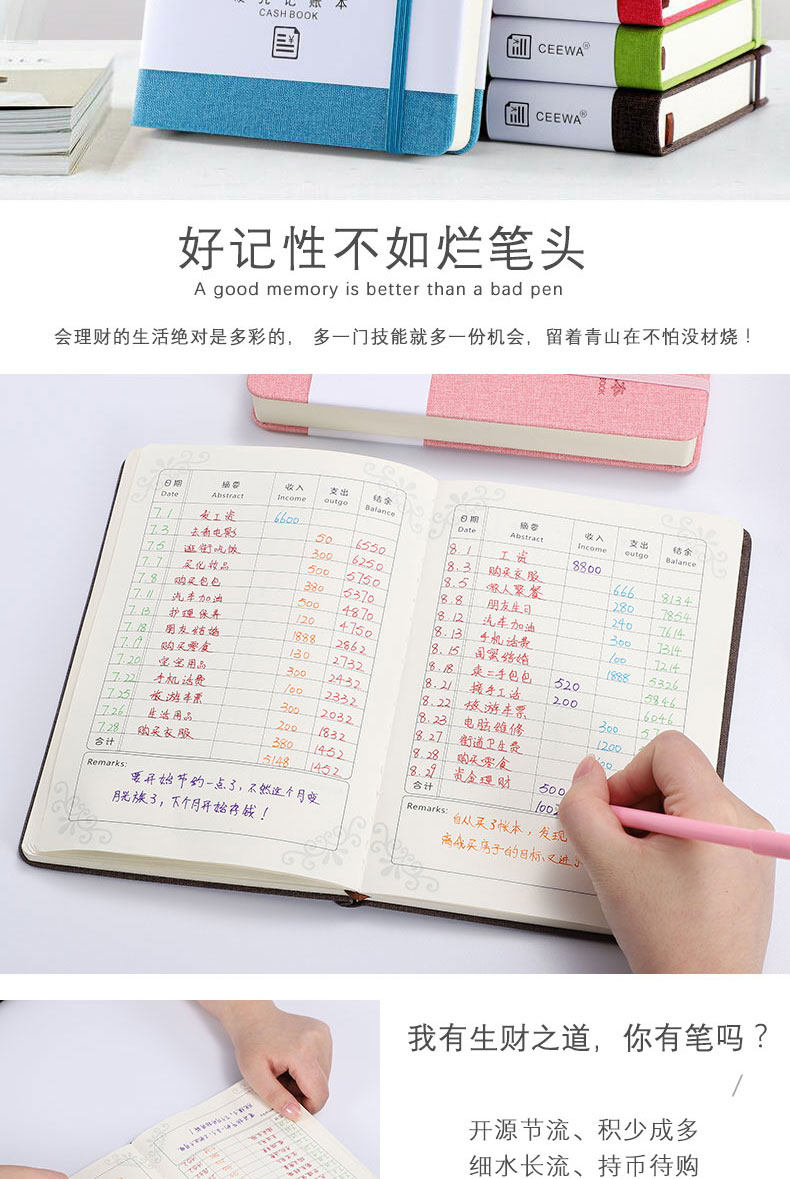 记账本
CASH BOOK
CEEWA®
CEEWA®
好记性不如烂笔头
A good memory is better than a bad pen
会理财的生活绝对是多彩的， 多一门技能就多一份机会，留着青山在不怕没材烧！
日期 摘要 收入 支出 结余
Date Abstract Income outgo Balance
7.1 发工资 6600
7.3 去看电影 50 6550
7.5 逛街吃饭 300 6250
7.7 买化妆品 500 5750
7.8 购买包包 380 5370
7.11 汽车加油 500 4870
7.13 护理保养 120 4750
7.18 朋友结婚 1888 2862
7.19 购买零食 130 2732
7.20 宝宝用品 300 2432
7.22 手机话费 100 2332
7.25 旅游车票 300 2032
7.26 生活用品 200 1832
7.28 购买衣服 380 1452
合计 5148 1452
Remarks:
要开始节约一点了，不然这个月变
月光族了，下个月开始存钱！
日期 摘要 收入 支出 结余
Date Abstract Income outgo Balance
8.1 工资 8800
8.3 购买衣服 666 8134
8.5 家人聚餐 280 7854
8.8 朋友生日 240 7614
8.12 汽车加油 300 7314
8.13 手机话费 100 7214
8.15 闺蜜结婚 1888 5326
8.18 卖二手包包 520 5846
8.21 接手工活 200 6046
8.22 旅游车票 300
8.23 电脑维修 1200
8.27 街道卫生费
8.28 购买零食
8.29 资金理财 500
合计
Remarks:
自从买了帐本，发现
离我买房子的目标又进了
我有生财之道，你有笔吗？
/
开源节流、积少成多
细水长流、持币待购